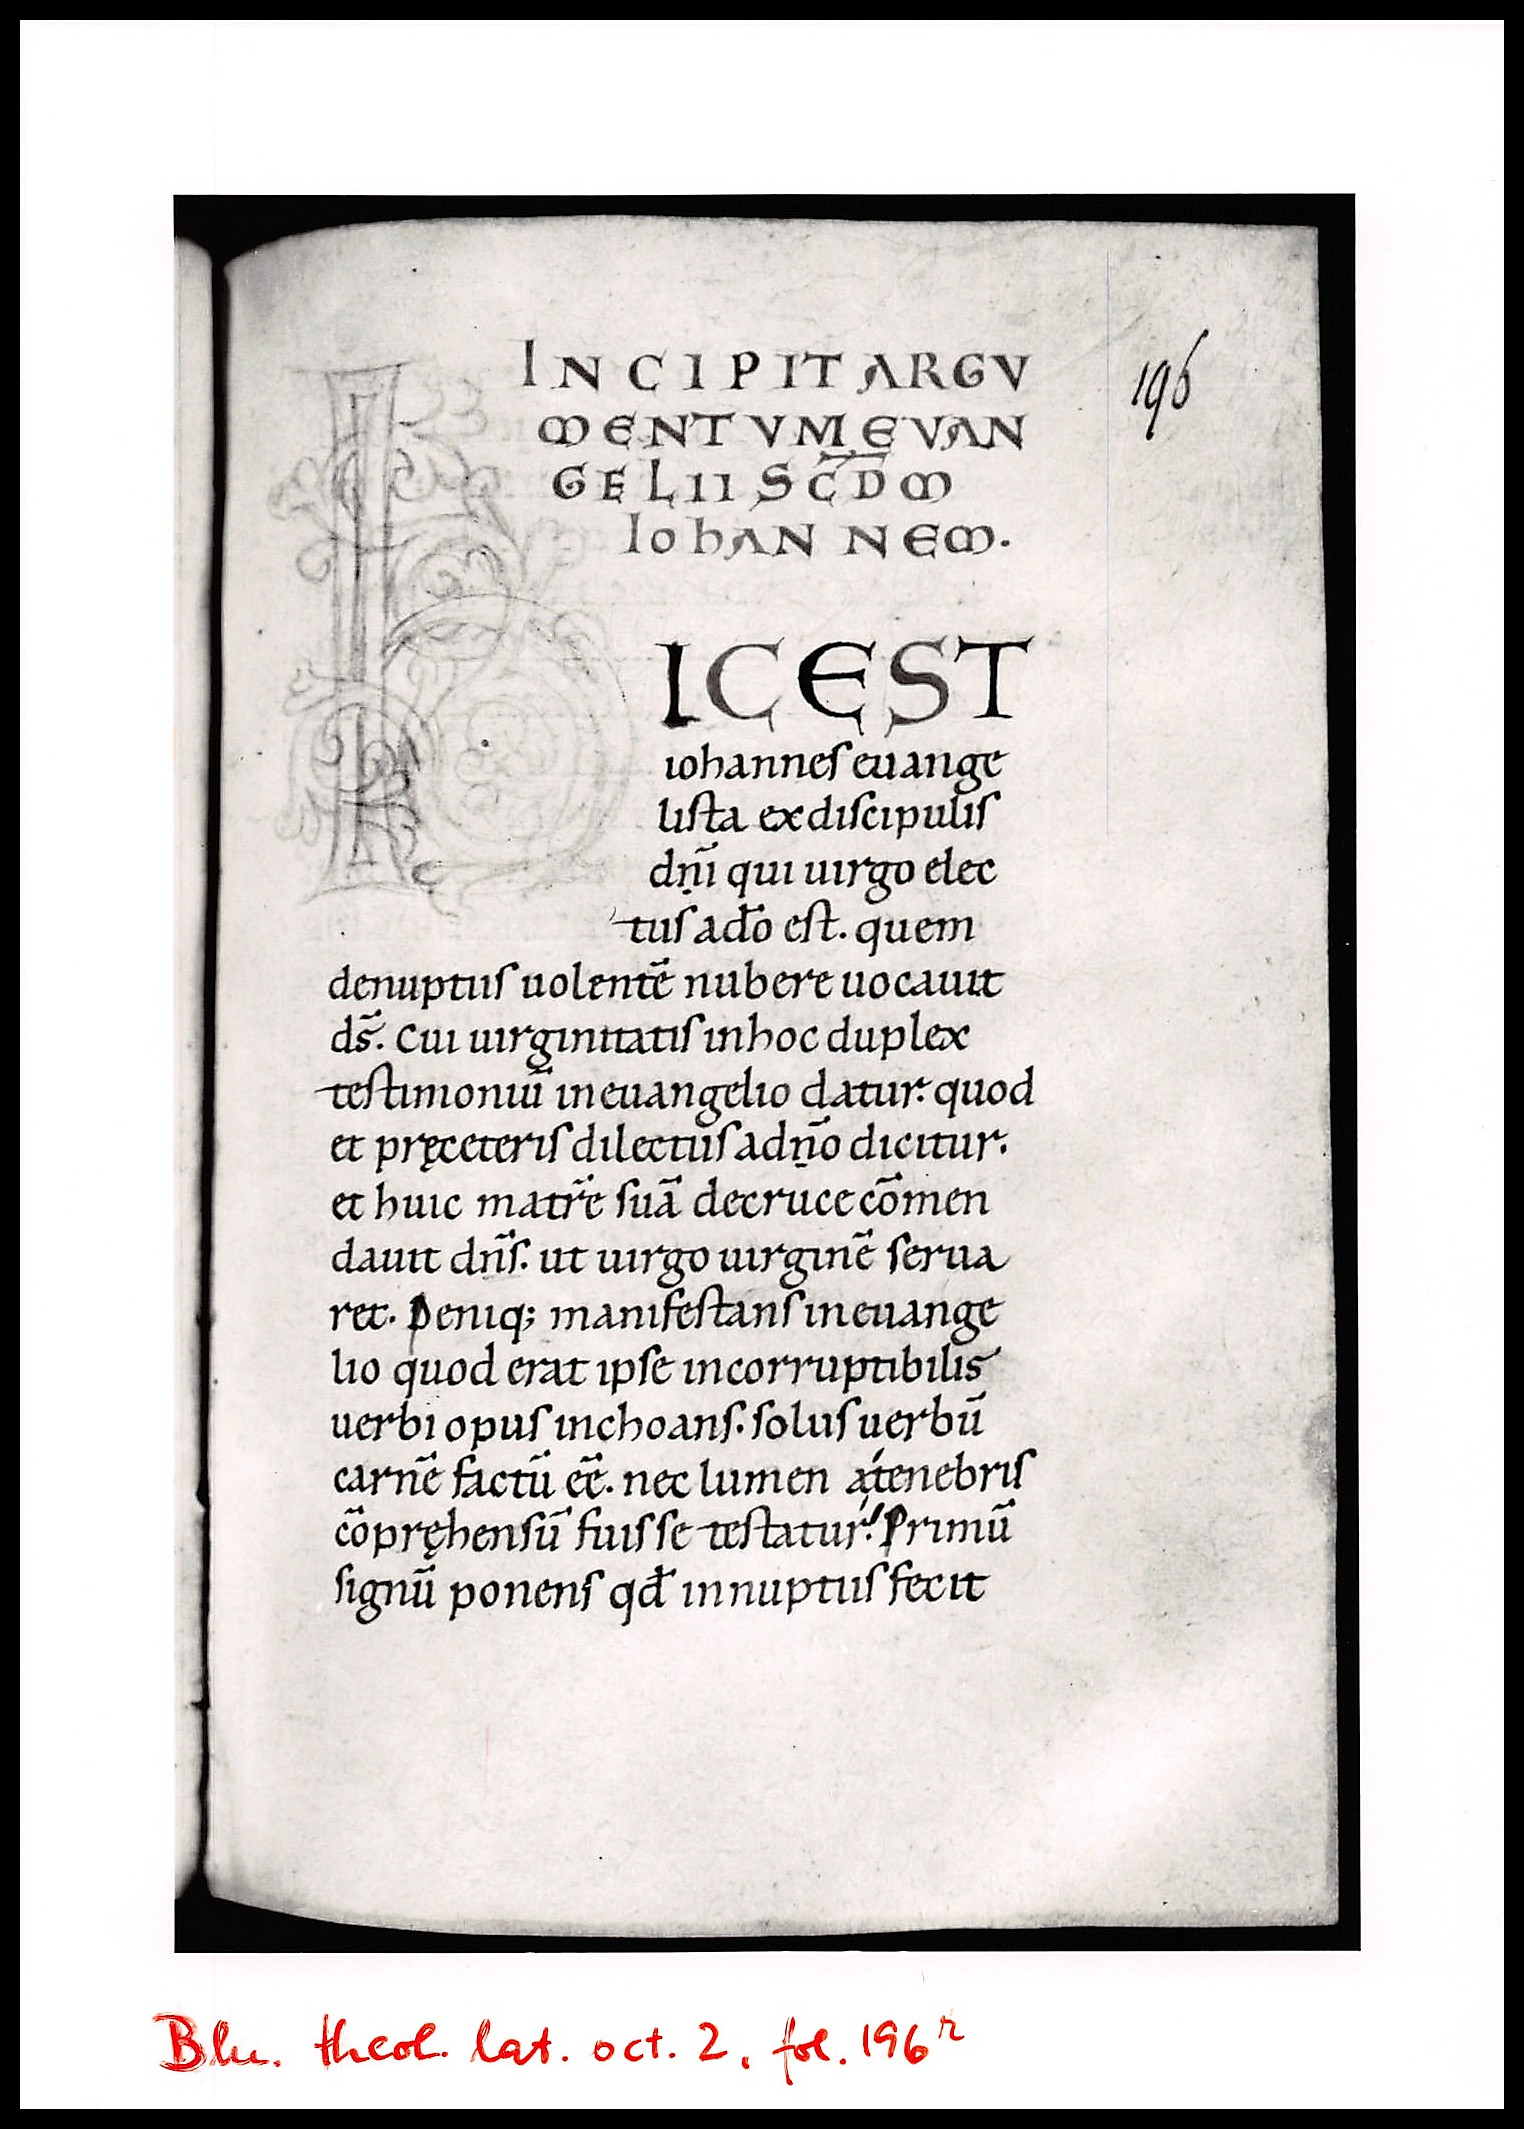 INCIPIT ARGV
MENTVM EVAN
GELII SCDM
IOhANNEM.
196
HIC EST
iohannes euange
lista ex discipulis
dni̅ qui uirgo elec
tus a do̅ est. quem
denuptiis uolente̅ nubere uocauit
ds̅. Cui uirginitatis inhoc duplex
testimoniu̅ ineuangelio datur. quod
et pręceteris dilectus adn̅o dicitur.
et huic matre̅ sua̅ decruce co̅men
dauit dn̅s. ut uirgo uirgine̅ serua
ret. Deniq; manifestans ineuange
lio quod erat ipse incorruptibilis
uerbi opus inchoans. solus uerbu̅
carne̅ factu̅ ee̅. nec lumen a tenebris
co̅pręhensu̅ fuisse testatur. Primu̅
signu̅ ponens qd̅ innuptiis fecit
Bln. theol. lat. oct. 2, fol. 196r